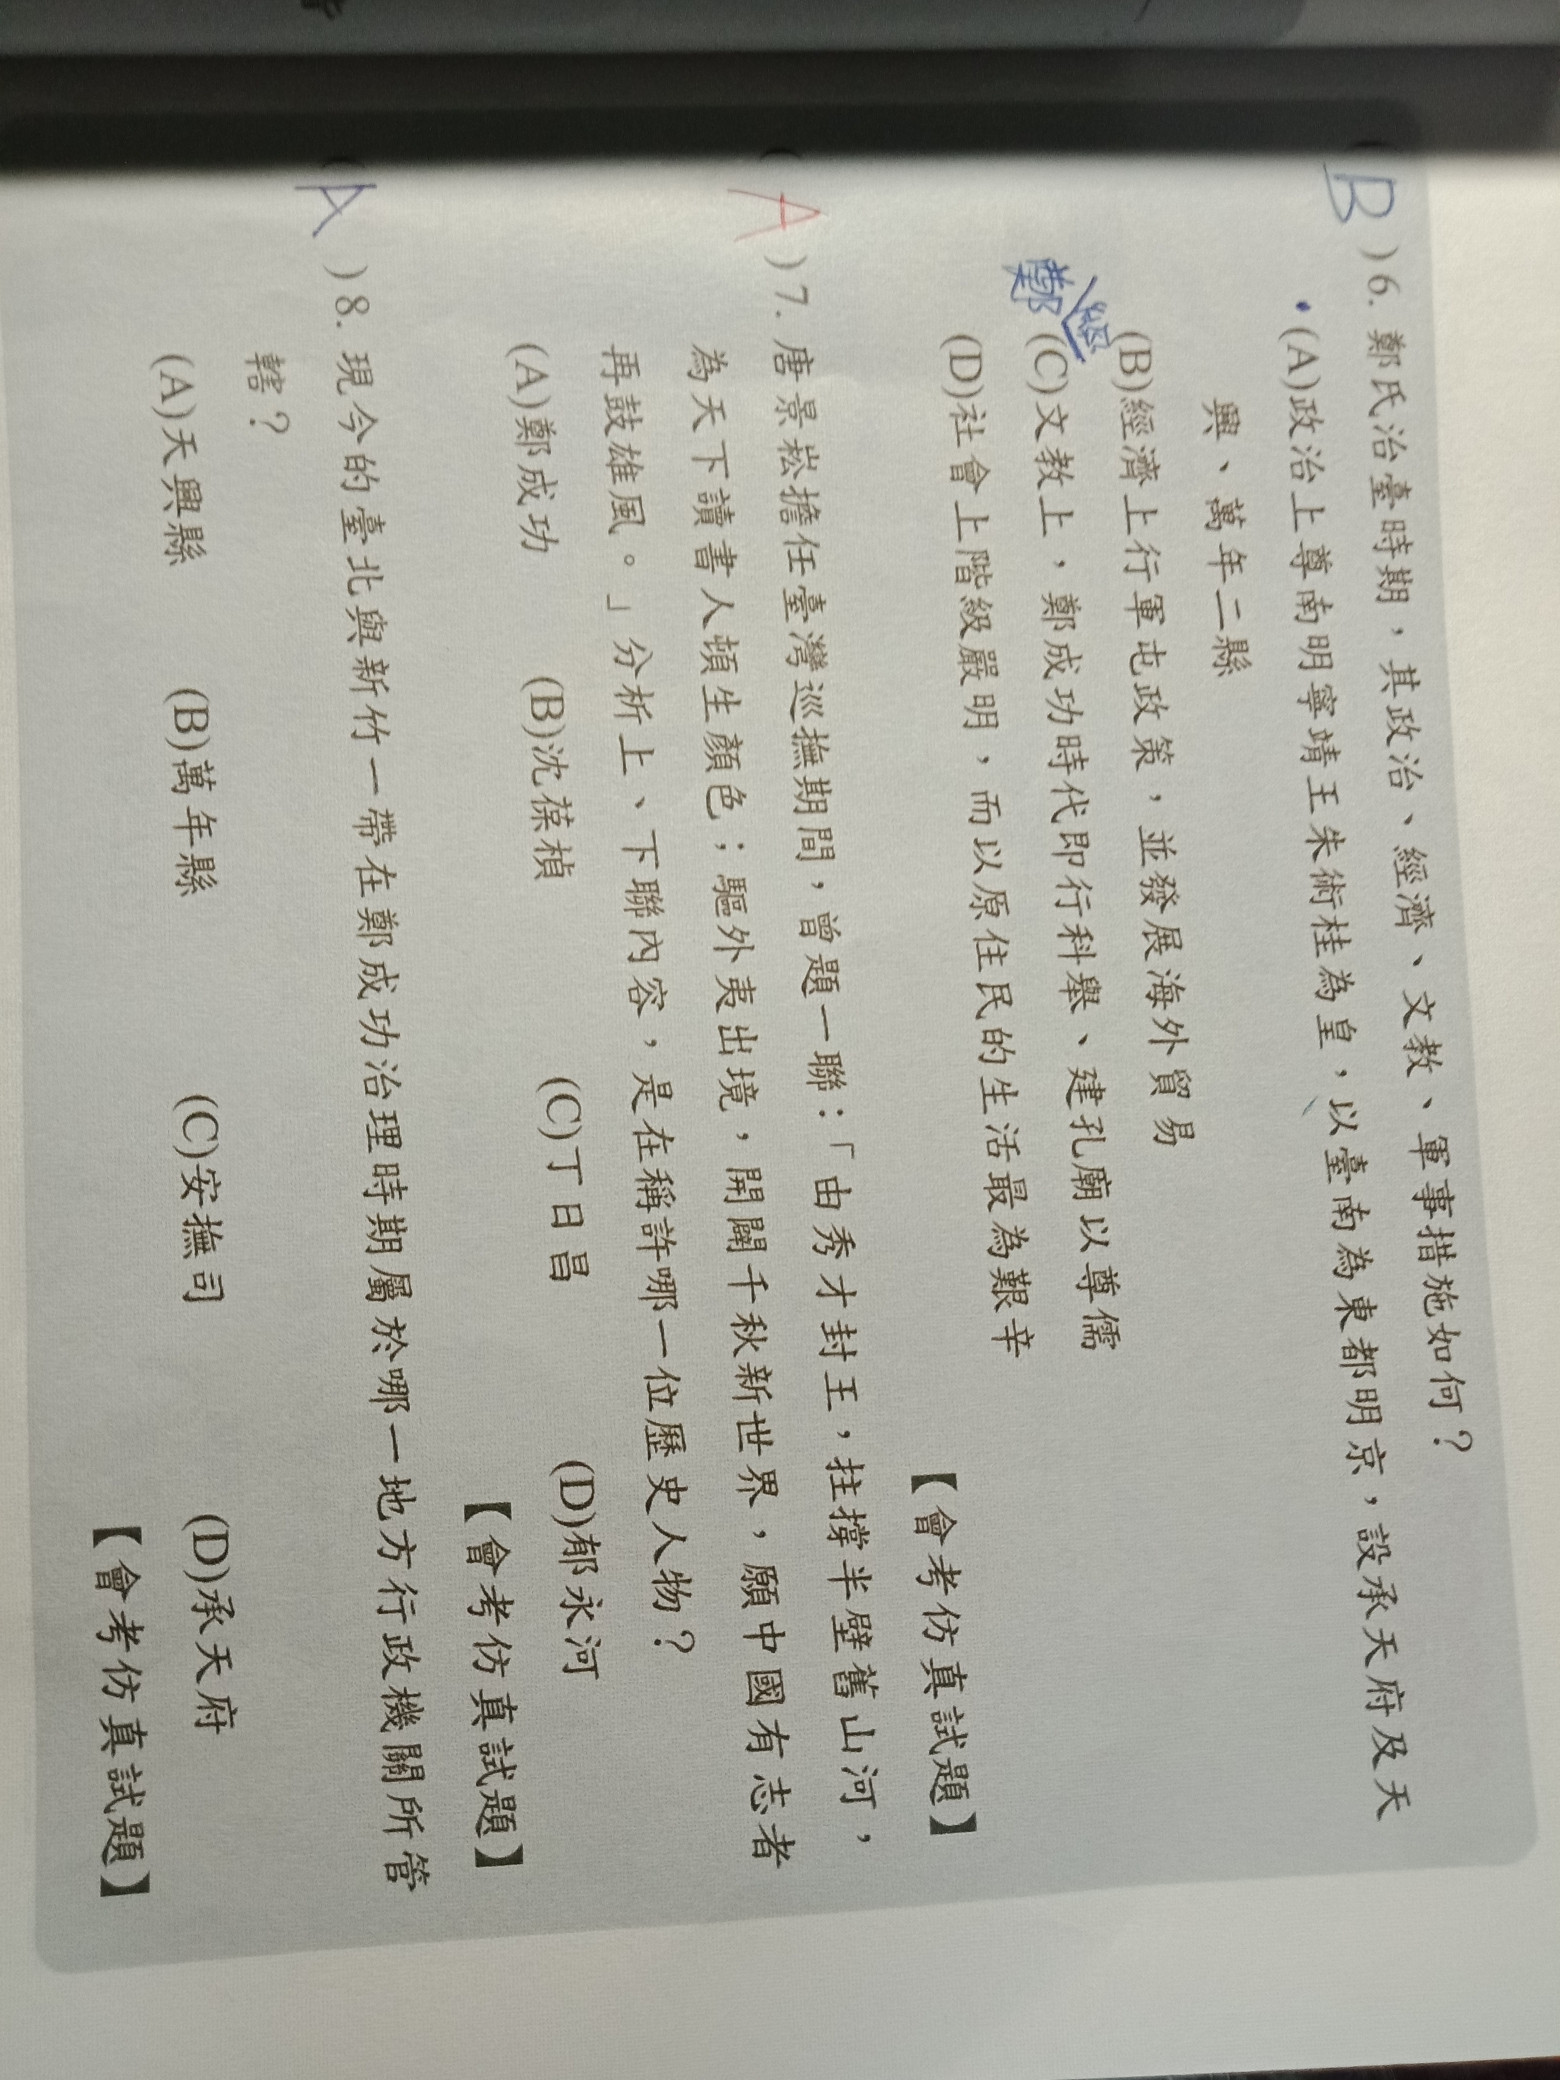 B )6. 鄭氏治臺時期，其政治、經濟、文教、軍事措施如何？
(A)政治上尊南明寧靖王朱術桂為皇，以臺南為東都明京，設承天府及天
興、萬年二縣
(B)經濟上行軍屯政策，並發展海外貿易
鄭經
(C)文教上，鄭成功時代即行科舉、建孔廟以尊儒
(D)社會上階級嚴明，而以原住民的生活最為艱辛
【會考仿真試題】
(A )7. 唐景崧擔任臺灣巡撫期間，曾題一聯：「由秀才封王，拄撐半壁舊山河，
為天下讀書人頓生顏色；驅外夷出境，開闢千秋新世界，願中國有志者
再鼓雄風。」分析上、下聯內容，是在稱許哪一位歷史人物？
(A)鄭成功 (B)沈葆楨 (C)丁日昌 (D)郁永河
【會考仿真試題】
(A )8. 現今的臺北與新竹一帶在鄭成功治理時期屬於哪一地方行政機關所管
轄？
(A)天興縣 (B)萬年縣 (C)安撫司 (D)承天府
【會考仿真試題】